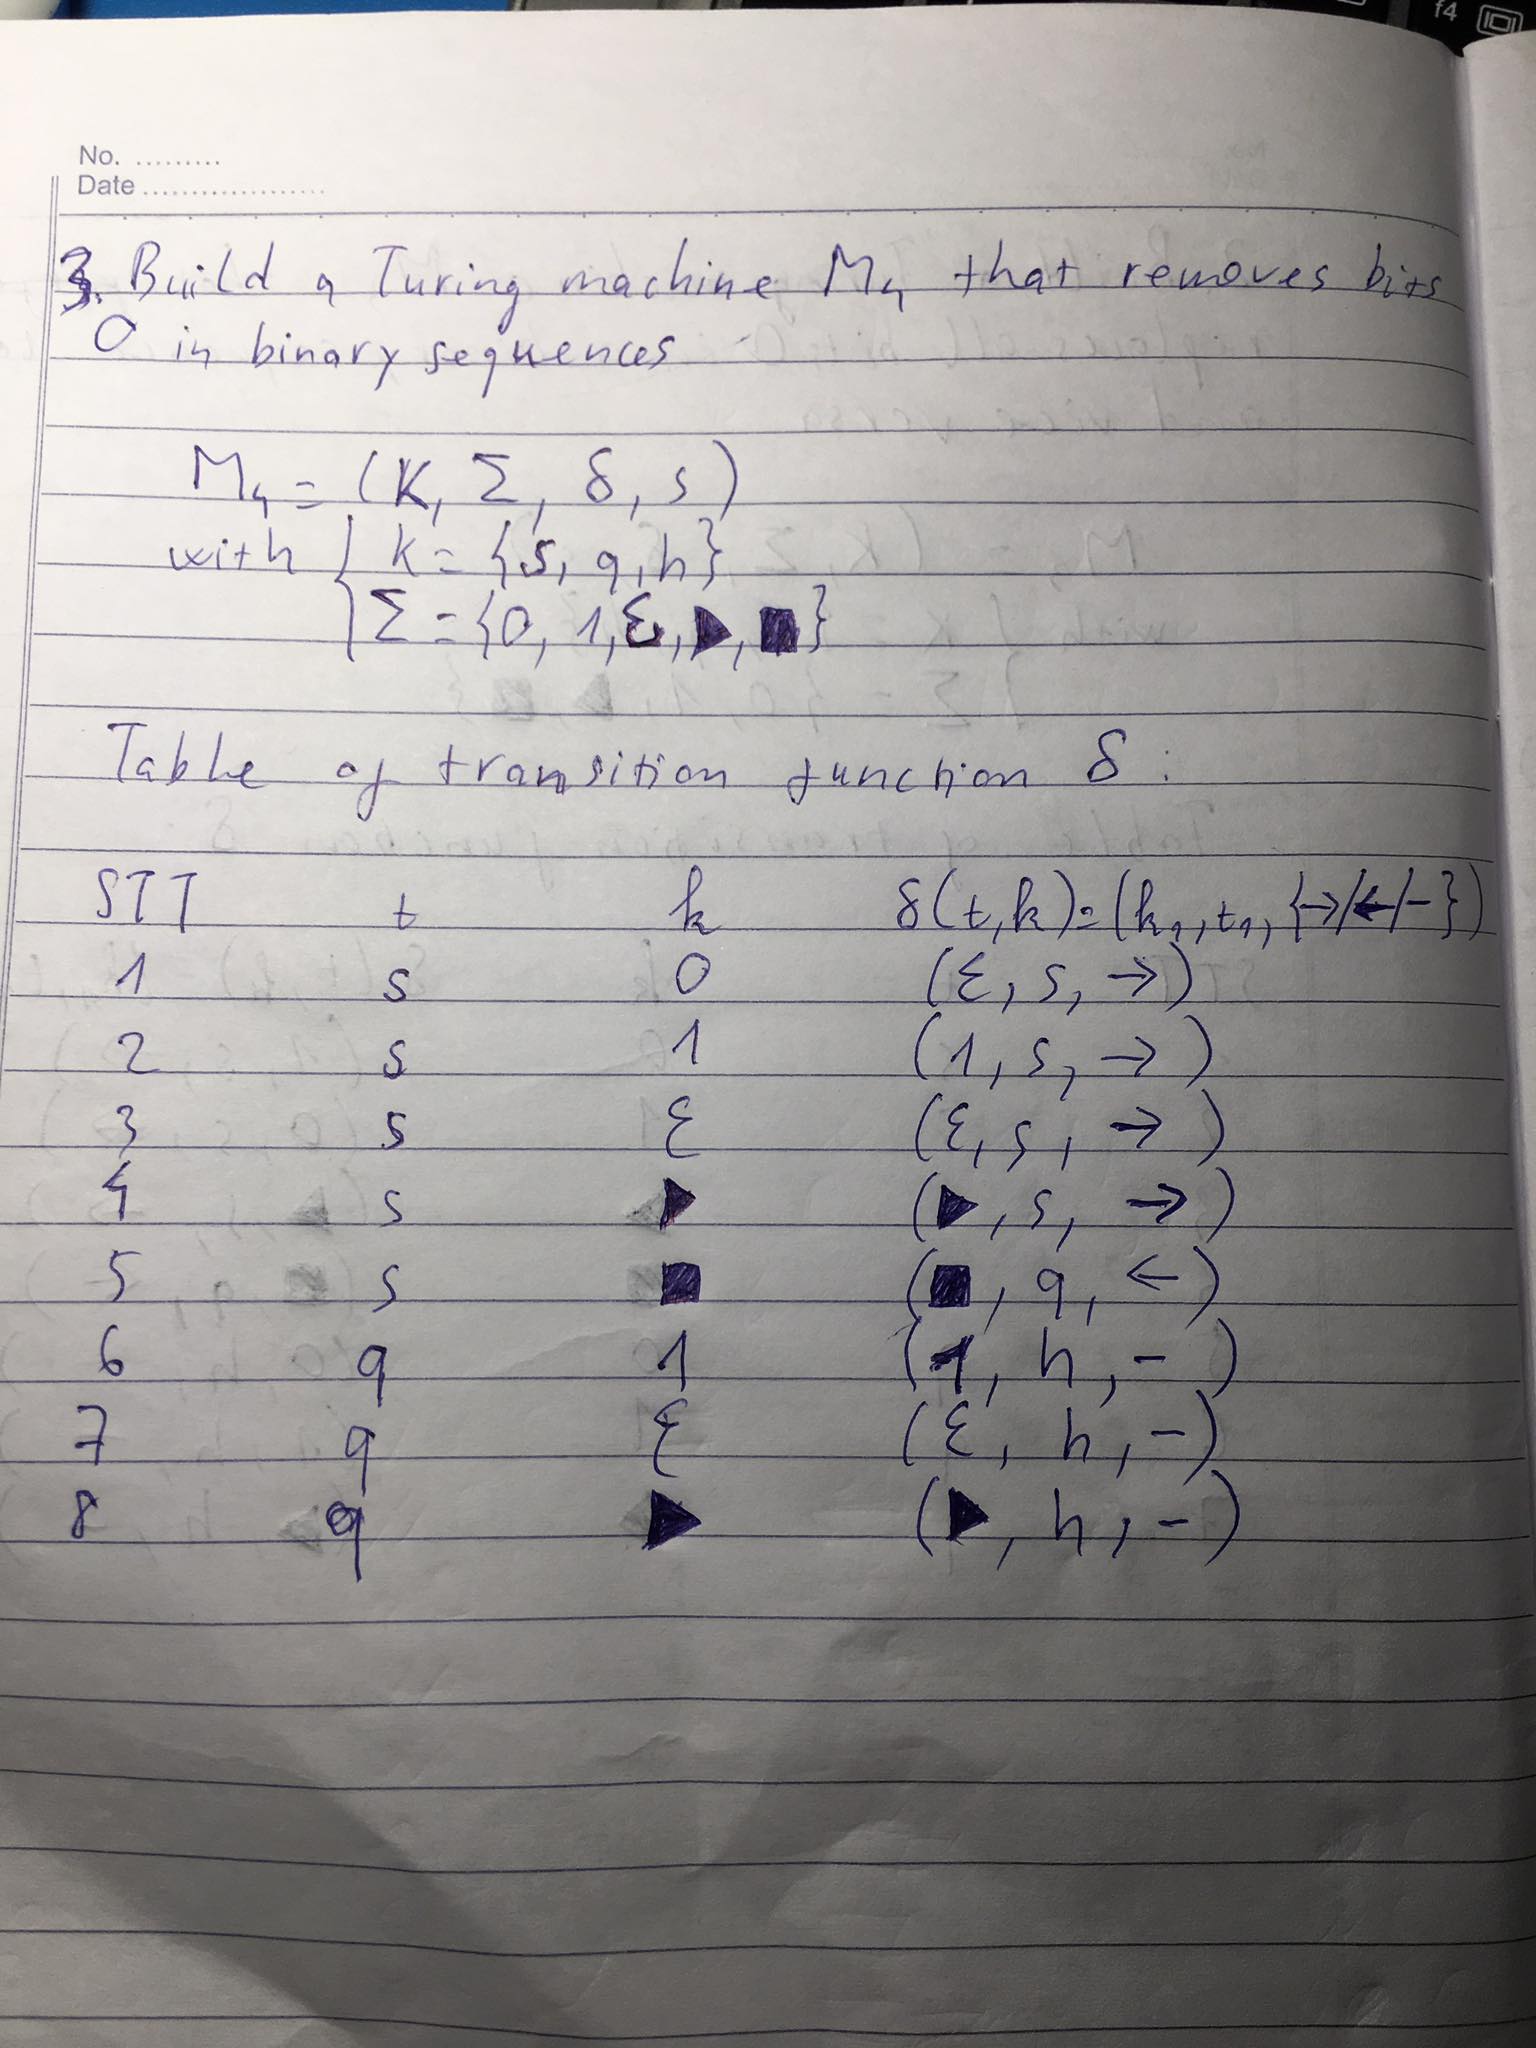 f4
No. .........
Date ...................
3. Build a Turing machine M₄ that removes bits
0 in binary sequences
M₄ = (K, Σ, δ, s)
with { K = {s, q, h}
Σ = {0, 1, ε, ▶, ■}
Table of transition function δ :
STT t k δ(t, k) = (k₁, t₁, {→/←/-})
1 s 0 (ε, s, →)
2 s 1 (1, s, →)
3 s ε (ε, s, →)
4 s ▶ (▶, s, →)
5 s ■ (■, q, ←)
6 q 1 (1, h, -)
7 q ε (ε, h, -)
8 q ▶ (▶, h, -)